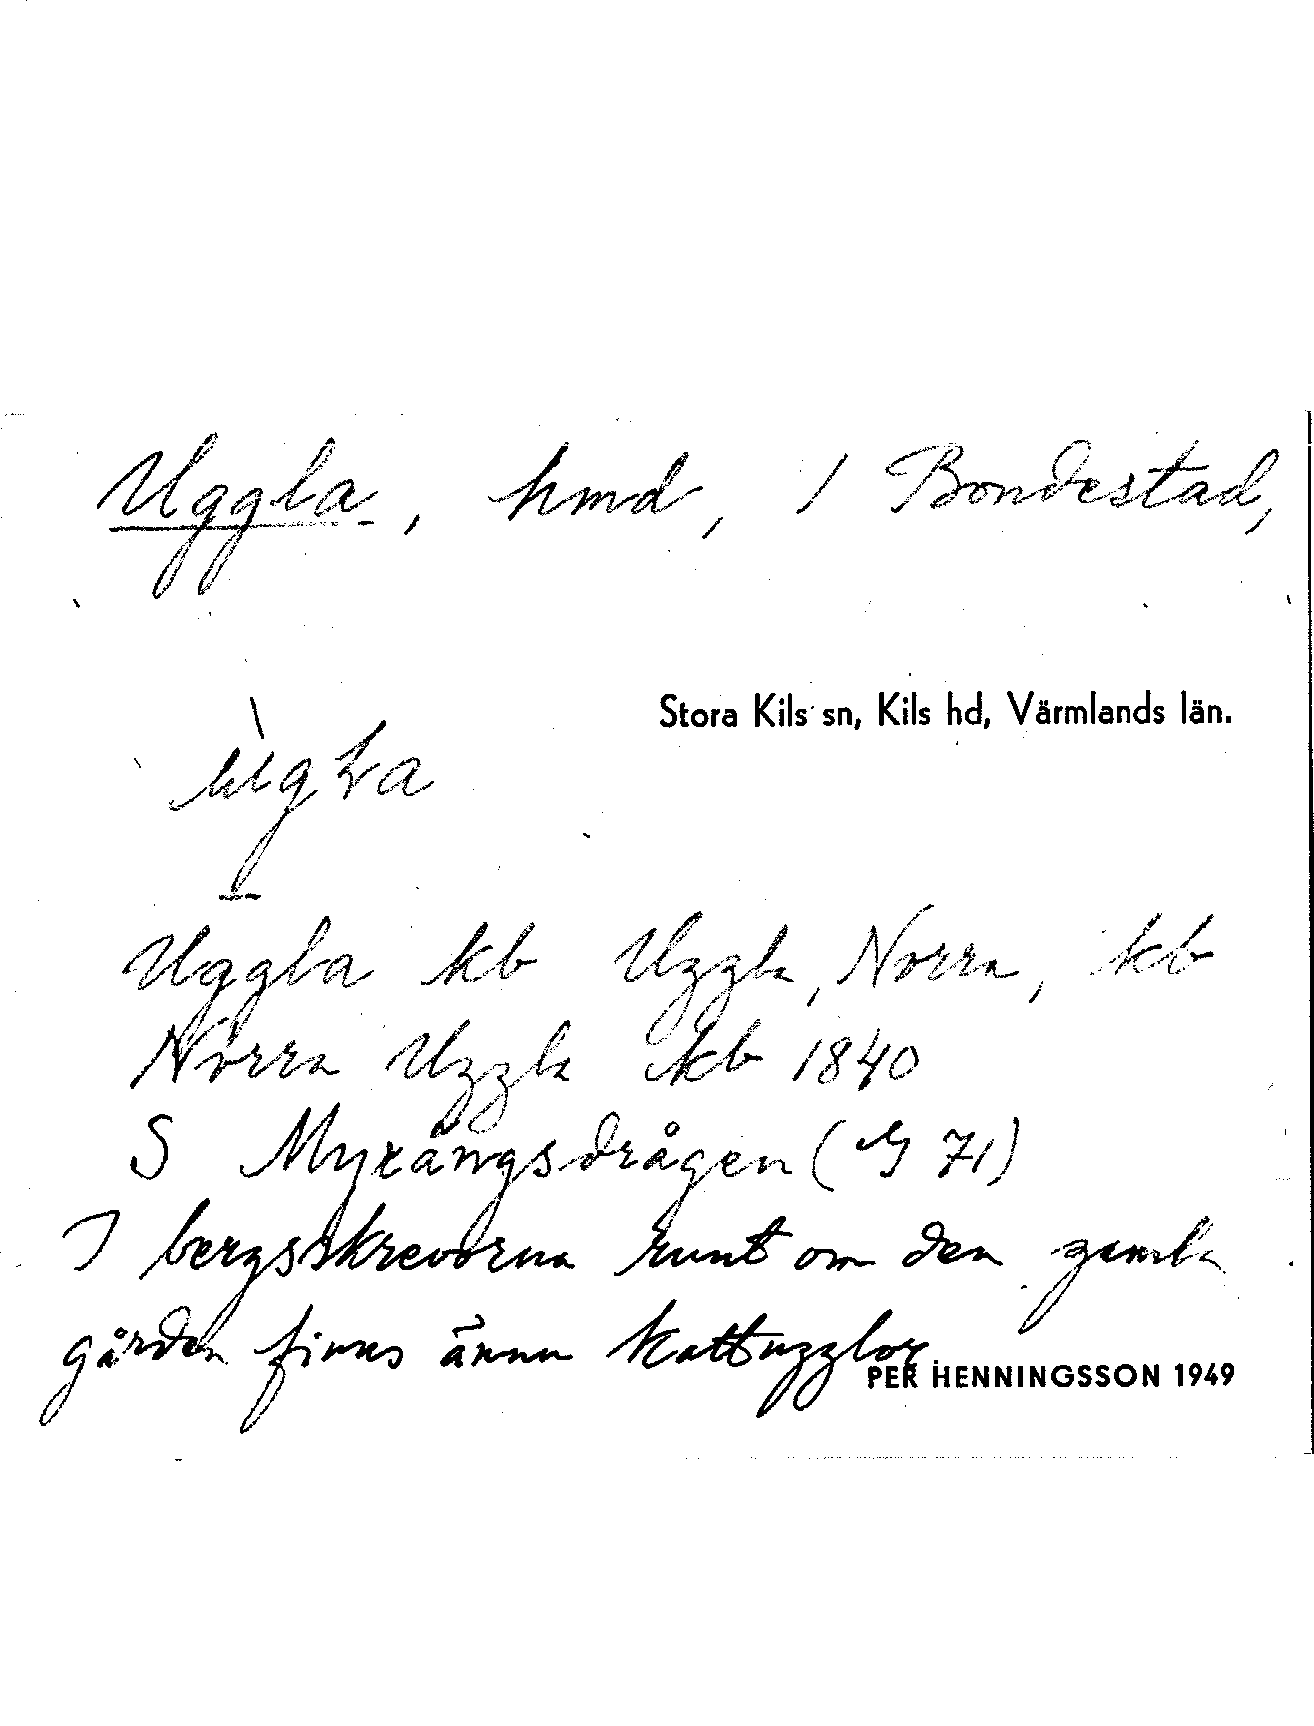 Uggla, hmd, 1 Bondestad,
Stora Kils sn, Kils hd, Värmlands län.
Uggla kb Uggla, Norra, kb
Norra Uggla kb 1840
S Myrängsdrågen ( 71)
I bergsskrevorna runt om den gamla
gården finns ännu kattugglor.
PER HENNINGSSON 1949